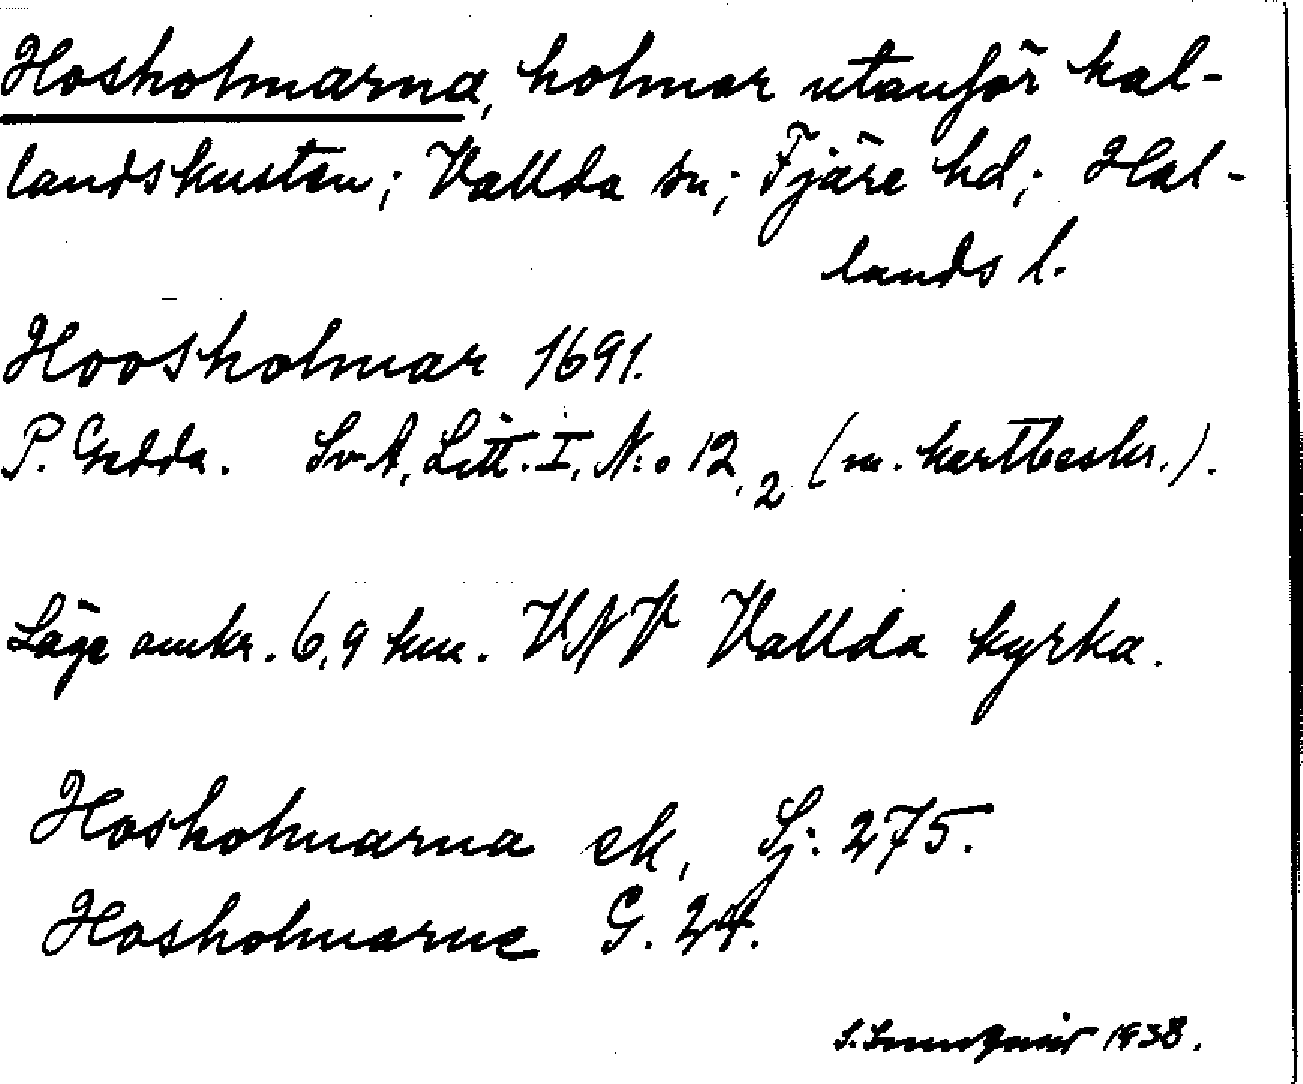 Hosholmarna, holmar utanför hal-
landskusten; Vallda sn; Fjäre hd; Hal-
lands l.
Hoosholmar 1691.
P. Gedda. SvA, Litt. I, N:o 12,2 (m. kartbeskr.).
Läge omkr. 6,9 km. VNV Vallda kyrka.
Hosholmarna ek, Sj: 275.
Hosholmarne G. 24.
S. 1938.